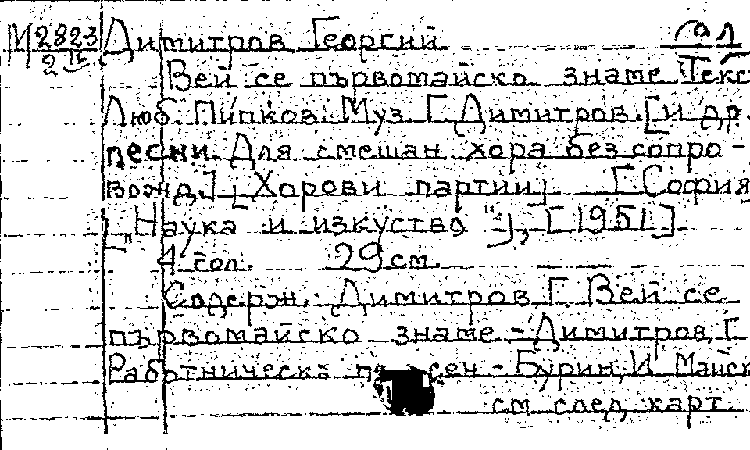 М2823 Димитров Георгий
2
Вей се първомайско знаме. Текс
Люб. Пипков. Муз. Г. Димитров. [и др.
песни. Для смешан. хора без сопро-
вожд.] [Хорови партии]. [София
[„Наука и изкуство“], [1951].
4 гол. 29 см.
Содерж.: Димитров Г. Вей се
първомайско знаме.- Димитров, Г.
Работническа - Бурин, И. Майск
см. след. карт.